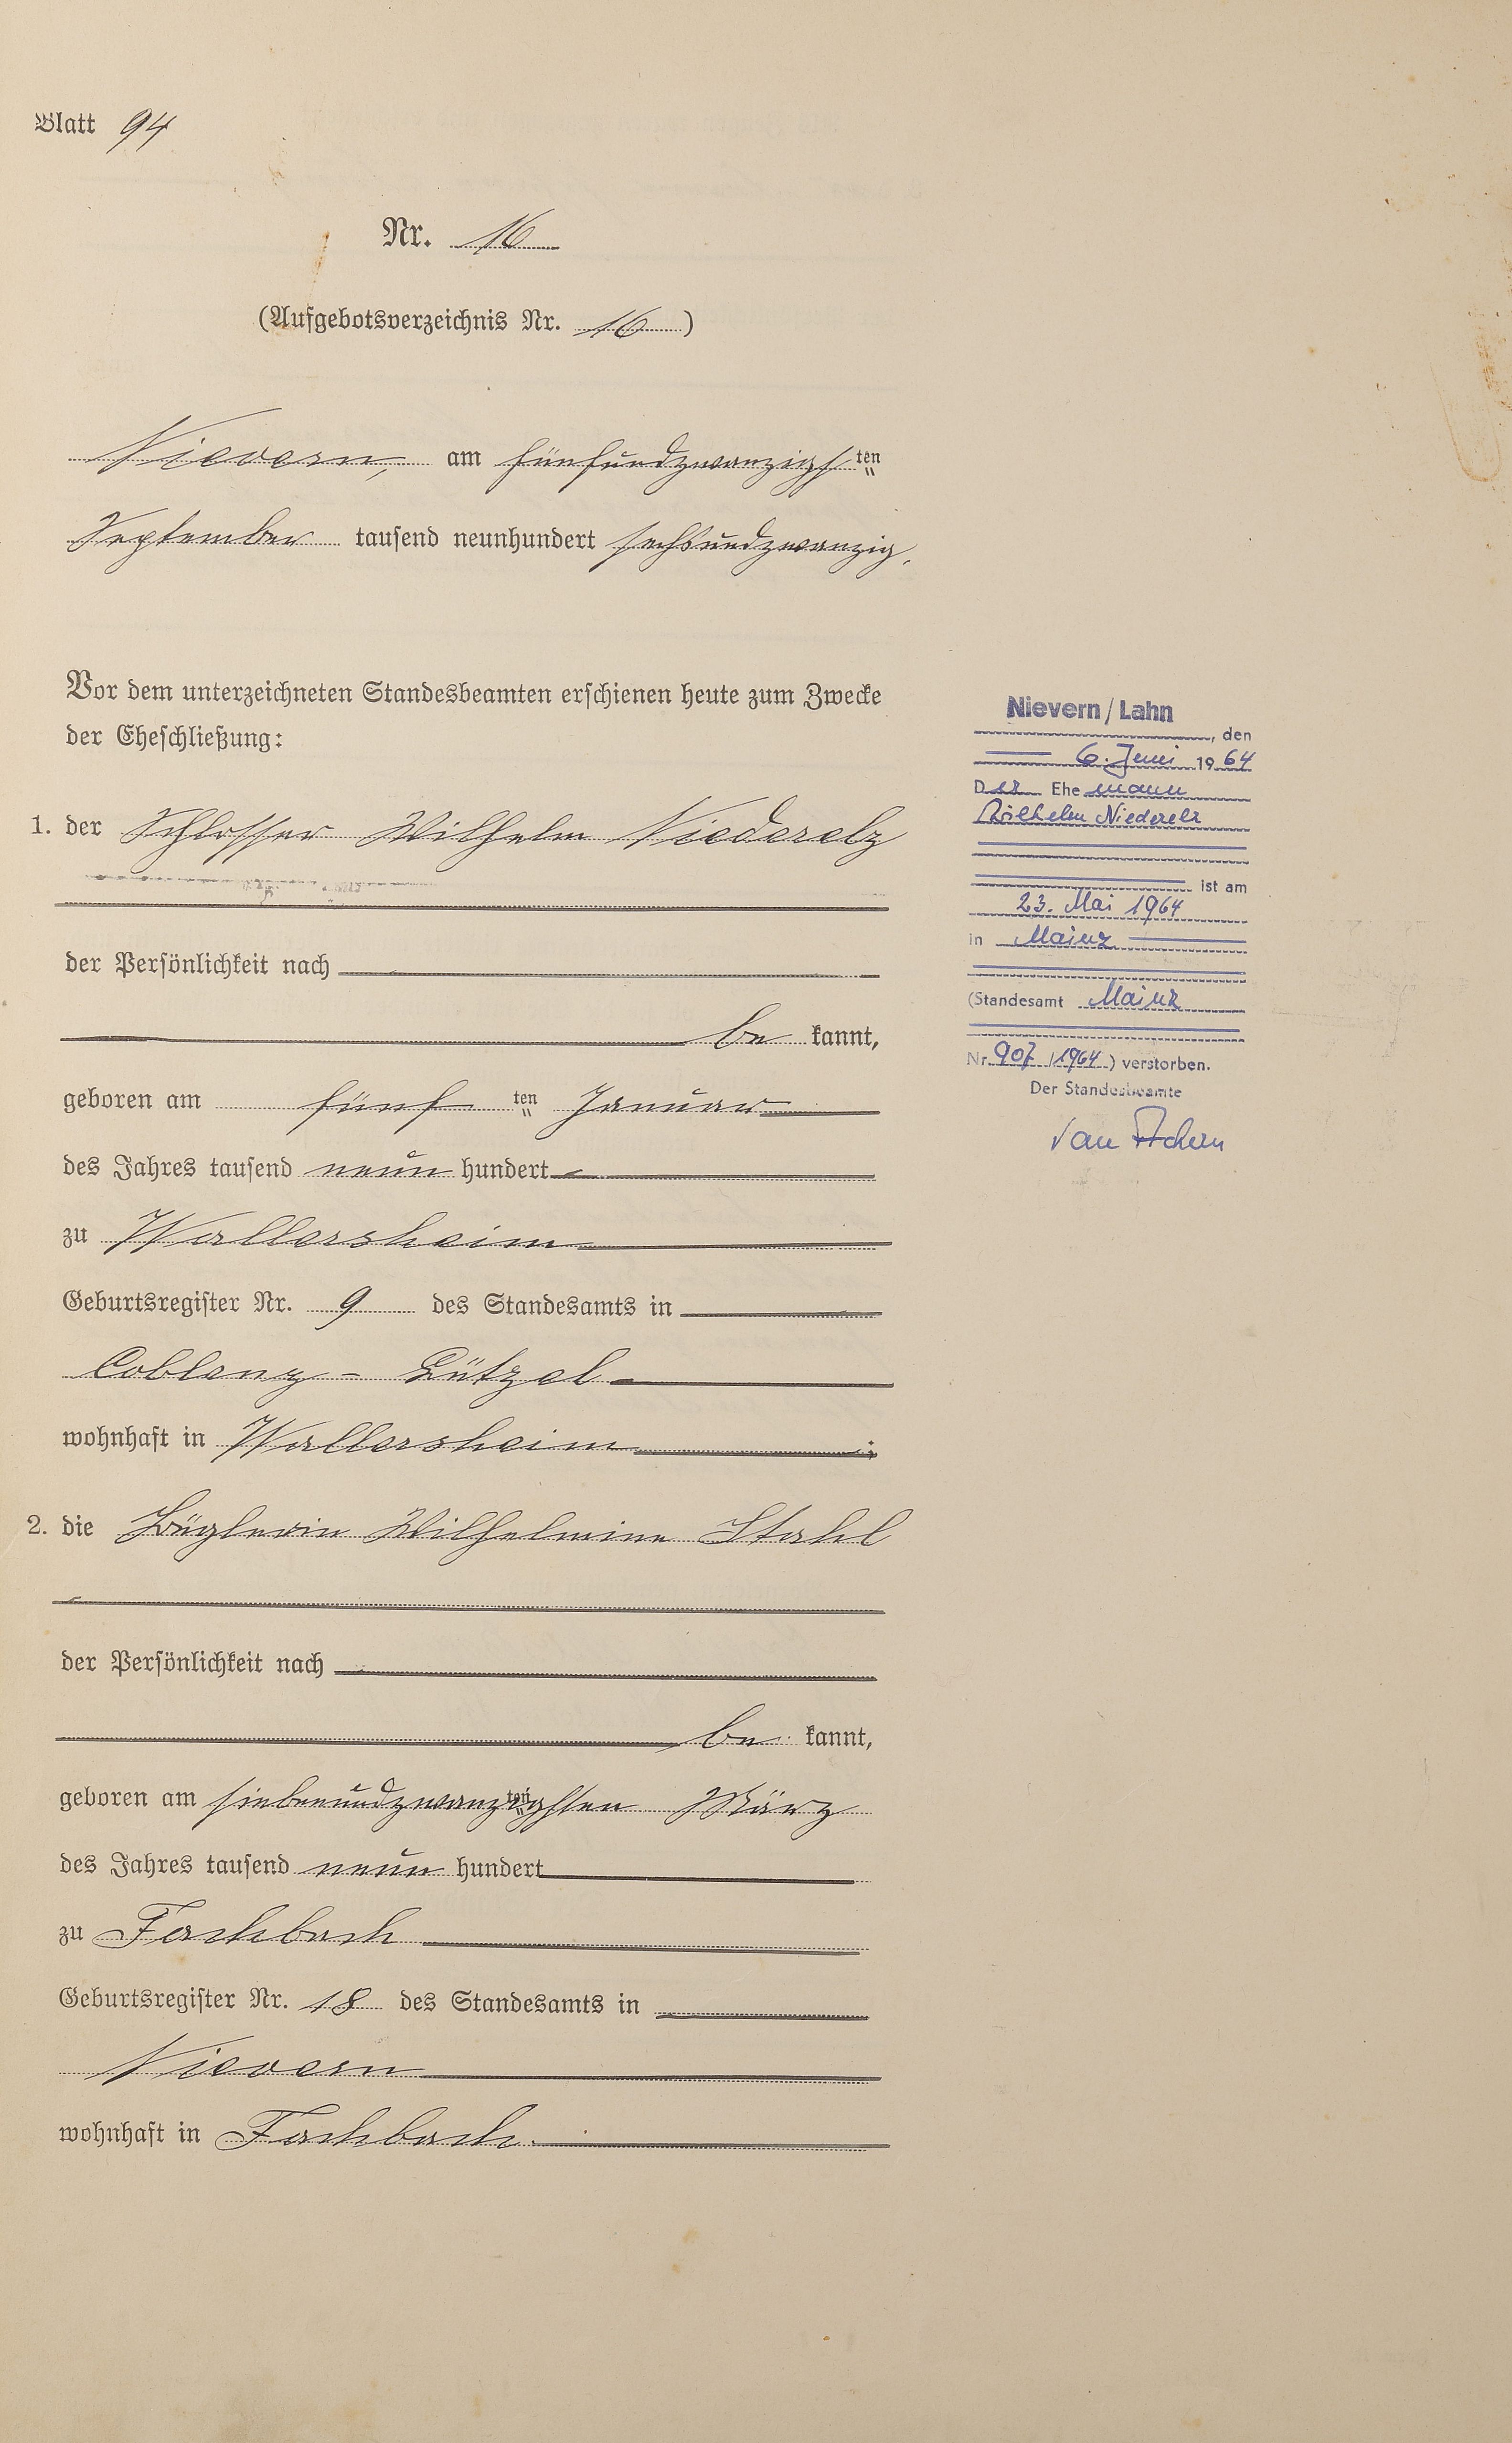 Blatt 94
Nr. 16
(Aufgebotsverzeichnis Nr. 16)
Nievern, am fünfundzwanzigsten
September tausend neunhundert sechsundzwanzig.
Vor dem unterzeichneten Standesbeamten erschienen heute zum Zwecke
der Eheschließung:
1. der Schlosser Wilhelm Niederelz
der Persönlichkeit nach
bekannt,
geboren am fünften Januar
des Jahres tausend neunhundert
zu Wallersheim
Geburtsregister Nr. 9 des Standesamts in
Coblenz-Lützel
wohnhaft in Wallersheim;
2. die Büglerin Wilhelmine Stahl
der Persönlichkeit nach
bekannt,
geboren am siebenundzwanzigsten März
des Jahres tausend neunhundert
zu Fachbach
Geburtsregister Nr. 18 des Standesamts in
Nievern
wohnhaft in Fachbach.
Nievern/Lahn, den
6. Juni 1964
Der Ehemann
Wilhelm Niederelz
ist am
23. Mai 1964
in Mainz
(Standesamt Mainz
Nr. 907/1964) verstorben.
Der Standesbeamte